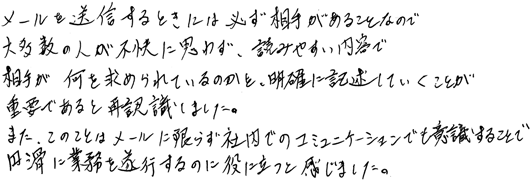 メールを送信するときには必ず相手があることなので
大多数の人が不快に思わず、読みやすい内容で
相手が何を求められているのかを、明確に記述していくことが
重要であると再認識しました。
また、このことはメールに限らず社内でのコミュニケーションでも意識することで
円滑に業務を遂行するのに役に立つと感じました。